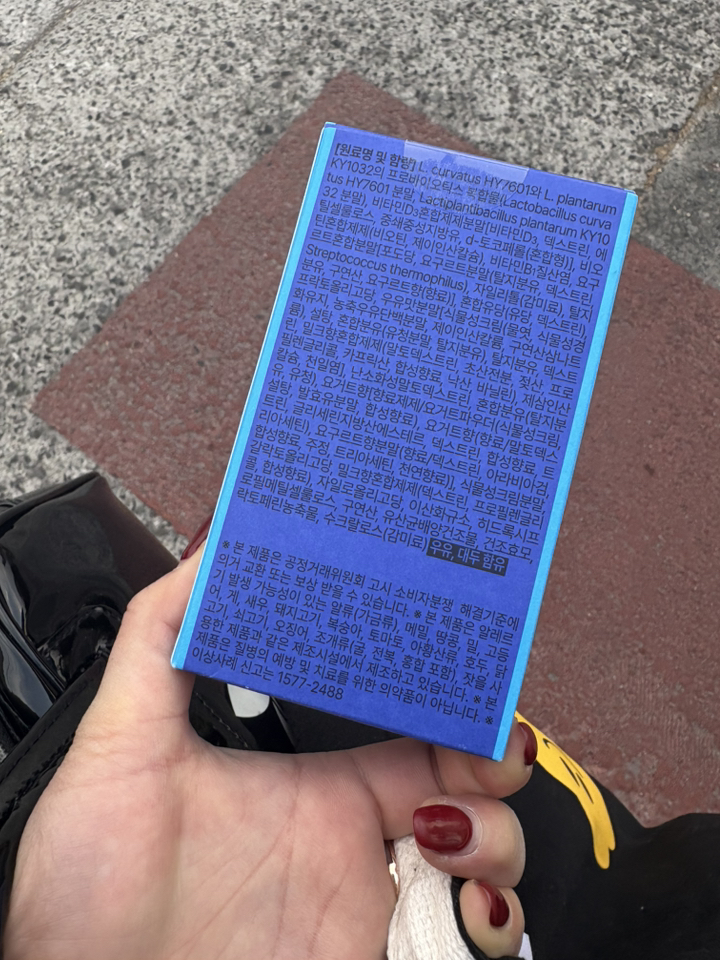 [원료명 및 함량] L. curvatus HY7601와 L. plantarum
KY1032의 프로바이오틱스 확합물(Lactobacillus curva
tus HY7601 분말, Lactiplantibacillus plantarum KY10
32 분말), 비타민D₃혼합제제분말[비타민D₃, 덱스트린, 에
틸셀룰로스, 중쇄중성지방유, d-토코페롤(혼합형)], 비오
틴혼합제제(비오틴, 제이인산칼슘), 비타민B₁질산염, 요구
르트혼합분말[포도당, 요구르트분말(탈지분유, 덱스트린,
Streptococcus thermophilus), 자일리톨(감미료), 탈지
분유, 구연산, 요구르트향(향료)], 혼합유당(유당, 덱스트린),
프락토올리고당, 우유맛분말[식물성크림(물엿, 식물성경
화유지, 농축우유단백분말, 제이인산칼륨, 구연산삼나트
륨), 설탕, 혼합분유(유청분말, 탈지분유), 탈지분유, 덱스트
린, 밀크향혼합제제(말토덱스트린, 초산전분, 젖산, 프로
필렌글리콜, 카프릭산, 합성향료, 낙산, 바닐린), 제삼인산
칼슘, 천일염], 난소화성말토덱스트린, 혼합분유(탈지분
유, 유청), 요거트향(향료제제/요거트파우더(식물성크림,
설탕, 발효유분말, 합성향료), 요거트향(향료/말토덱스
트린, 글리세린지방산에스테르, 덱스트린, 합성향료, 트
리아세틴), 요구르트향분말(향료/덱스트린, 아라비아검,
합성향료, 주정, 트리아세틴, 천연향료)], 식물성크림분말,
갈락토올리고당, 밀크향혼합제제(덱스트린, 프로필렌글리
콜, 합성향료), 자일로올리고당, 이산화규소, 히드록시프
로필메틸셀룰로스, 구연산, 유산균배양건조물, 건조효모,
락토페린농축물, 수크랄로스(감미료) 우유, 대두 함유
※ 본 제품은 공정거래위원회 고시 소비자분쟁 해결기준에
의거 교환 또는 보상 받을 수 있습니다. ※ 본 제품은 알레르
기 발생 가능성이 있는 알류(가금류), 메밀, 땅콩, 밀, 고등
어, 게, 새우, 돼지고기, 복숭아, 토마토, 아황산류, 호두, 닭
고기, 쇠고기, 오징어, 조개류(굴, 전복, 홍합 포함), 잣을 사
용한 제품과 같은 제조시설에서 제조하고 있습니다. ※ 본
제품은 질병의 예방 및 치료를 위한 의약품이 아닙니다. ※
이상사례 신고는 1577-2488